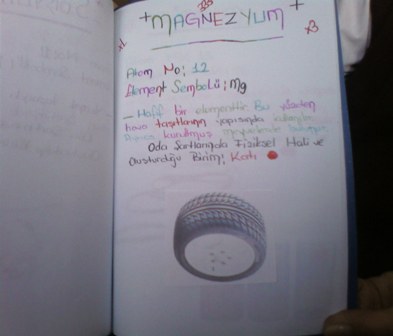 +MAGNEZYUM+
Atom No; 12
Element Sembolü; Mg
— Hafif bir elementtir. Bu yüzden
hava taşıtlarının yapısında
Oda Şartlarında Fiziksel Hali ve
Oluşturduğu Birim; Katı